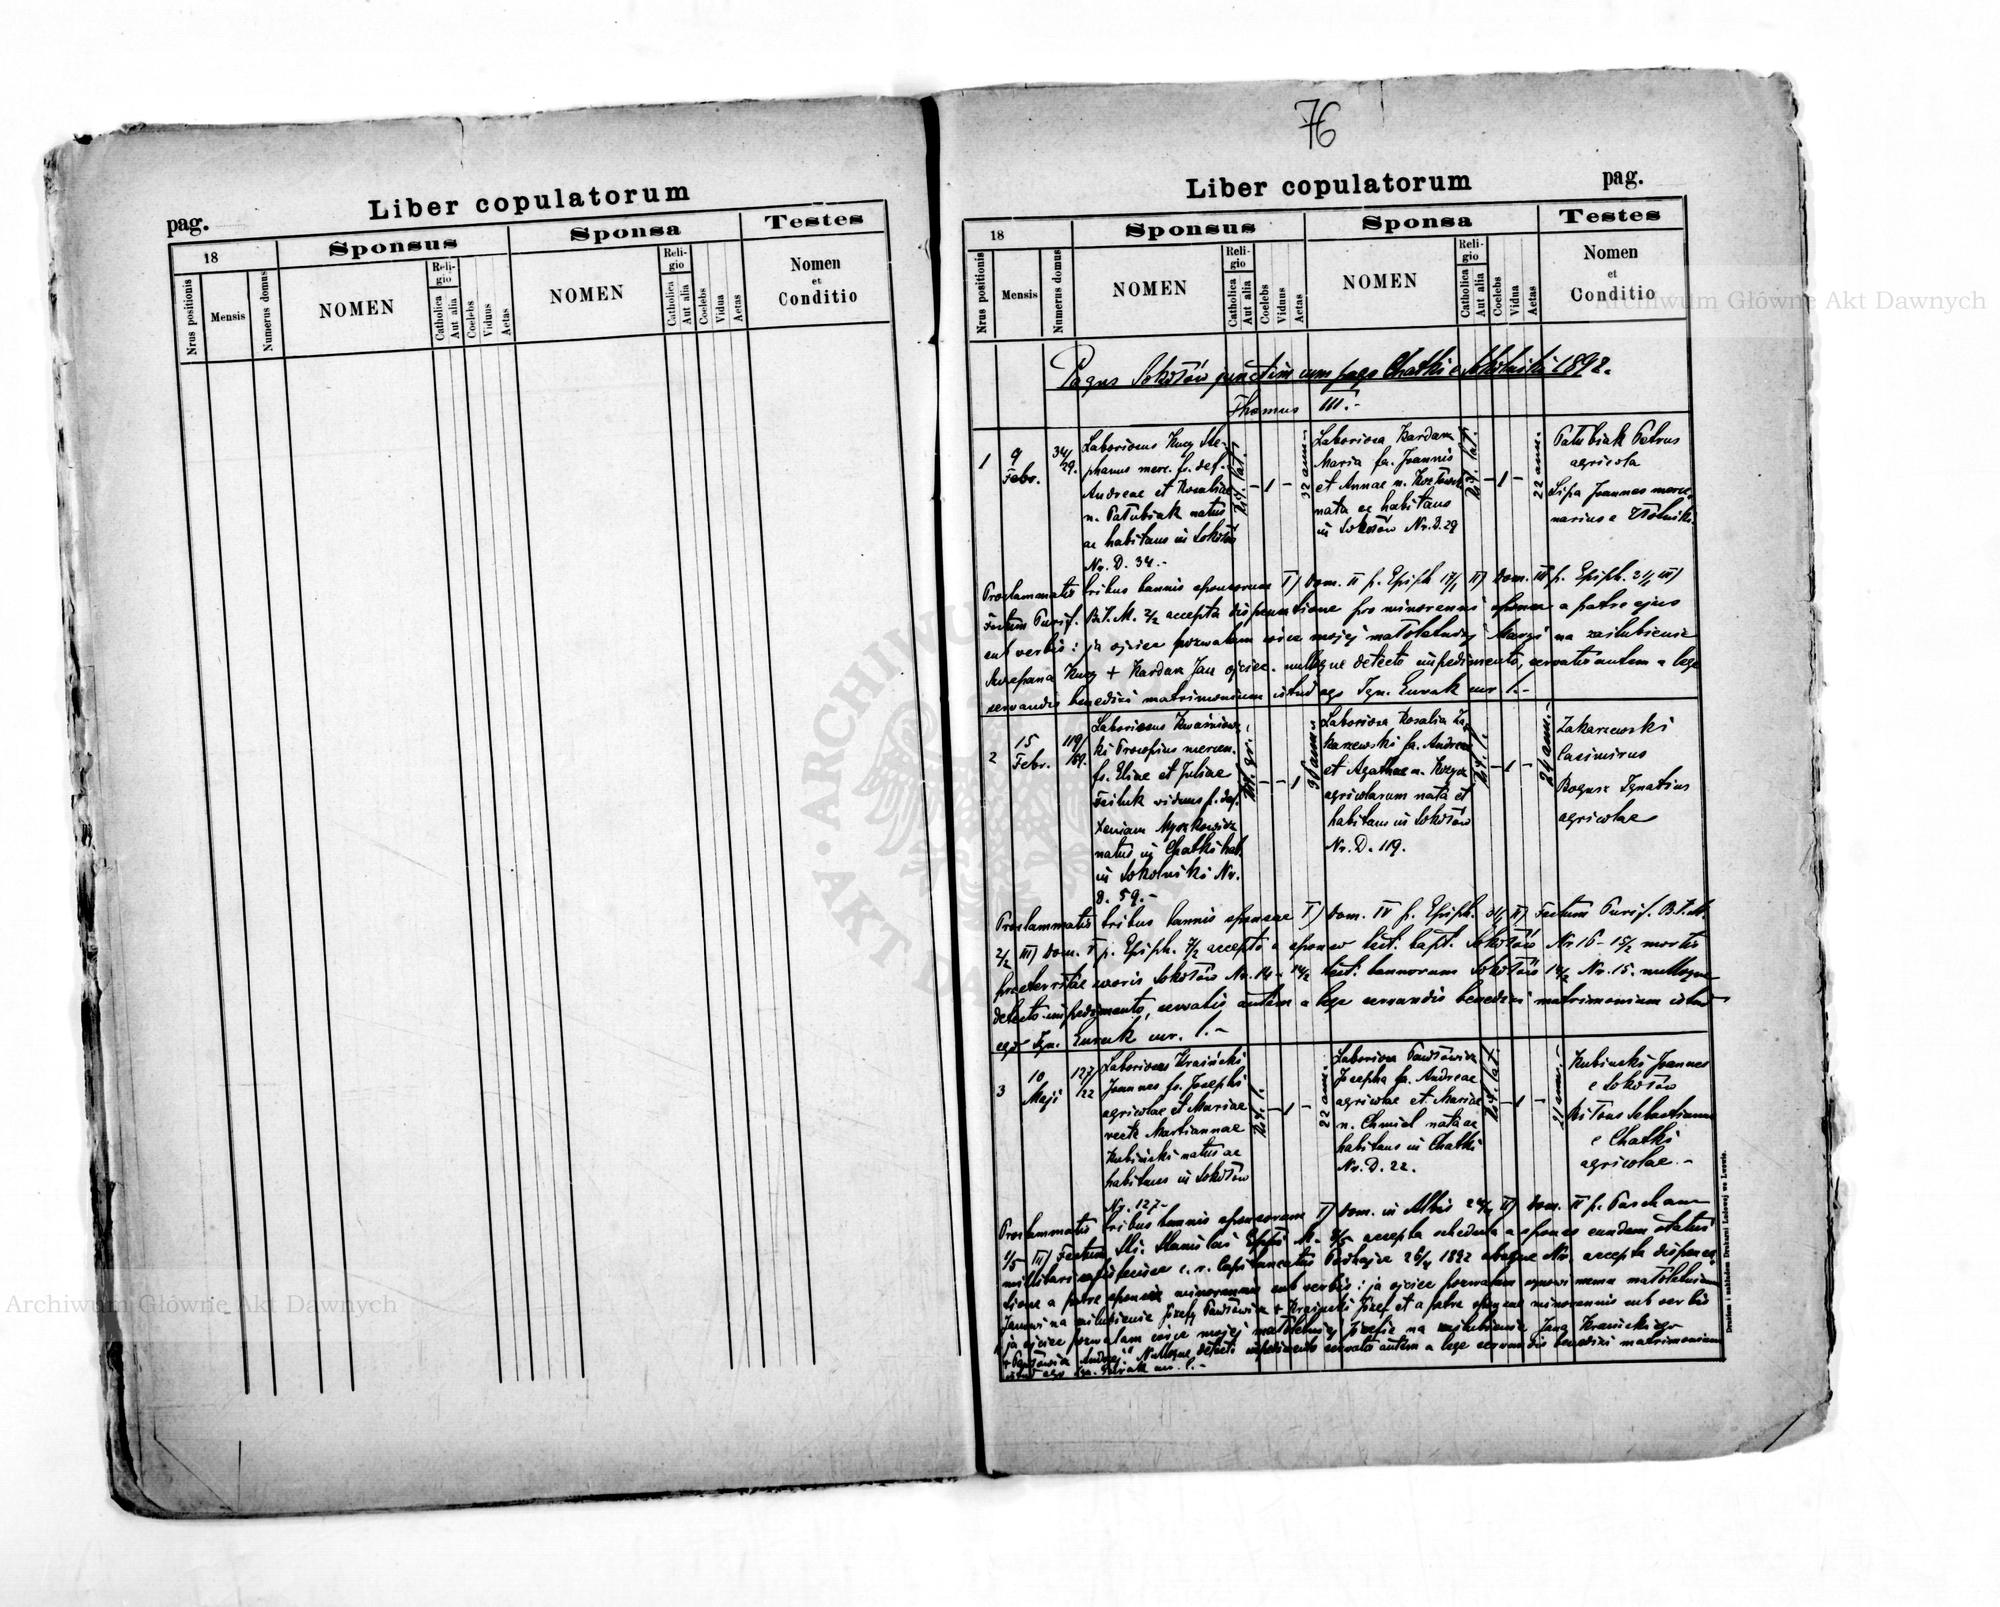 pag.
Liber copulatorum
18
Sponsus
Sponsa
Testes
Nrus positionis
Mensis
Numerus domus
NOMEN
Religio
Catholica
Aut alia
Coelebs
Viduus
Aetas
NOMEN
Religio
Catholica
Aut alia
Coelebs
Vidua
Aetas
Nomen
et
Conditio
76
Liber copulatorum
pag.
18
Sponsus
Sponsa
Testes
Nrus positionis
Mensis
Numerus domus
NOMEN
Religio
Catholica
Aut alia
Coelebs
Viduus
Aetas
NOMEN
Religio
Catholica
Aut alia
Coelebs
Vidua
Aetas
Nomen
et
Conditio
Pagus Sokołów junctim cum pago Chatki e Sokolniki 1892.
Thomus III.-
1
9
Febr.
34/
29.
Laboriosus Kucy Ste-
phanus merc. fs. def.
Andreae et Rosaliae
n. Pałubiak natus
ac habitans in Sokołów
Nr. D. 34.-
rit. lat.
- 1 -
32 ann.-
Laboriosa Kardasz
Maria fa. Joannis
et Annae n. Kozłowsk
nata ac habitans
in Sokołów Nr. D. 29
rit. lat.
- 1 -
22 ann.
Pałubiak Petrus
agricola
Lipa Joannes merce-
narius e
Proclammatis tribus bannis sponsorum I) Dom. II p. Epiph 17/1 II) Dom. III p. Epiph. 24/1 III)
Festum Purif. B.V.M. 2/2 accepta dispensatione pro minorenni sponsa a patre ejus
sub verbis: ja ojciec pozwalam córce mojej małoletniej Maryi na zaślubienie
Szczepana Kucy + Kardasz Jan ojciec. nulloque detecto impedimento, servatis autem a lege
servandis benedixi matrimonium istud ego Ign. Curak mr. l.-
2
15
Febr.
119/
159.
Laboriosus Kwaśniows-
ki Procopius mercen.
fs. Eliae et Juliae
viduus p. def.
Myszkowicz
natus in Chatki hab.
in Sokolniki Nr.
D. 59.-
rit. gr.-
- - 1
36 ann.
Laboriosa Rosalia Za-
karzewski fa. Andreae
et Agathae n.
agricolarum nata et
habitans in Sokołów
Nr. D. 119.
rit. l.
- 1 -
24 ann.-
Zakarzewski
Casimirus
Bogusz Ignatius
agricolae
Proclammatis tribus bannis sponsae I) Dom. IV p. Epiph. 31/1 II) Festum Purif. B.V.M.
2/2 III) Dom. V p. Epiph. 7/2 accepto a sponso test. bapt. Sokołów Nr. 16 - 15/2 mortis
praeteritae uxoris Sokołów Nr. 14 - 14/2 test. bannorum Sokołów 14/2 Nr. 15. nulloque
detecto impedimento, servatis autem a lege servandis benedixi matrimonium istud
ego Ign. Curak mr. l.-
3
10
Maji
127/
22
Laboriosus Kraiński
Joannes fs. Josephi
agricolae et Mariae
recte Marciannae
Kubiński natus ac
habitans in Sokołów
Nr. 127-
rit. l.
- 1 -
22 ann.
Laboriosa Pawłowicz
Josepha fa. Andreae
agricolae et Mariae
n. Chmiel nata ac
habitans in Chatki
Nr. D. 22.
rit. lat
- 1 -
21 ann.-
Kubinski Joannes
e Sokołów
Sebastianus
e Chatki
agricolae.-
Proclammatis tribus bannis sponsorum I) Dom. in Albis 24/4 II) Dom. II p. Pascham
1/5 III) Festum Sti. Stanislai Eppi M. 8/5 accepta scheda a sponso
militari c. r. Capitaneatus Podhajce 26/4 1892 absque Nr. accepta dispensa-
tione a patre sponsi minorennis sub verbis: ja ojciec pozwalam synowi memu małoletniemu
Janowi na zaślubienie Józefy Pawłowicz + Kraiński Józef et a patre sponsae minorennis sub verbis
ja ojciec pozwalam córce mojej małoletniej Józefie na zaślubienie Jana Kraińskiego
+ Pawłowicz Andrzej. Nulloque detecto impedimento servatis autem a lege servandis benedixi matrimonium
istud ego Ign. Curak mr. l.-
Drukiem i nakładem Drukarni Ludowej we Lwowie.
Archiwum Główne Akt Dawnych
Archiwum Główne Akt Dawnych
ARCHIWUM
AKT DAWNYCH